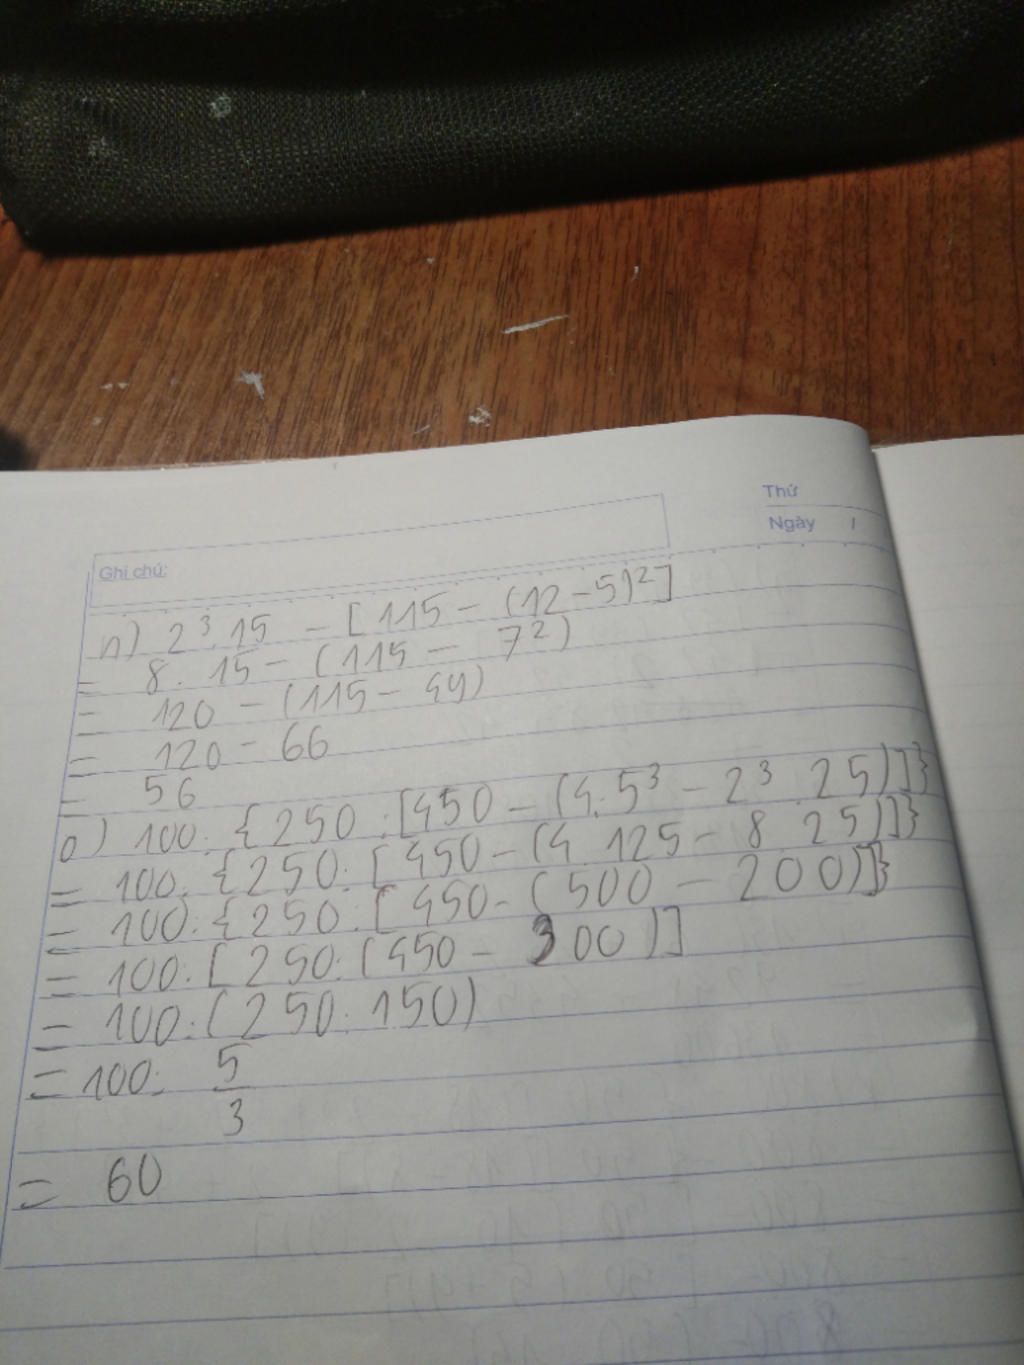 Thứ
Ngày /
Ghi chú:
n) 2³.15 - [115 - (12-5)²]
= 8.15 - (115 - 7²)
= 120 - (115 - 49)
= 120 - 66
= 56
o) 100:{250:[450-(4.5³ - 2³.25)]}
= 100:{250:[450-(4.125-8.25)]}
= 100:{250:[450-(500-200)]}
= 100:[250:(450-300)]
= 100:(250:150)
= 100: 5/3
= 60